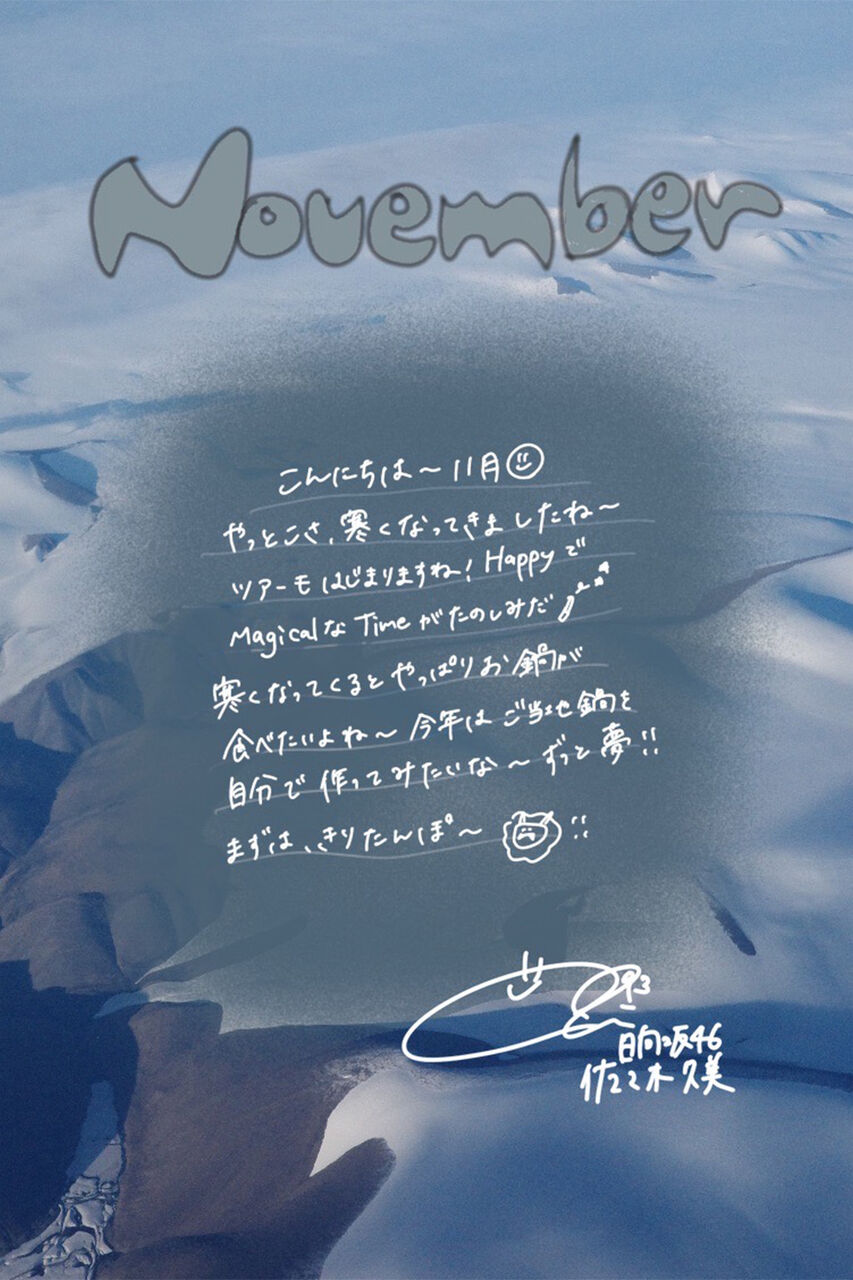 November
こんにちは〜11月
やっとこさ、寒くなってきましたね〜
ツアーもはじまりますね！Happyで
MagicalなTimeがたのしみだ
寒くなってくるとやっぱりお鍋が
食べたいよね〜今年はご当地鍋を
自分で作ってみたいな〜ずっと夢!!
まずは、きりたんぽ〜!!
日向坂46
佐々木久美